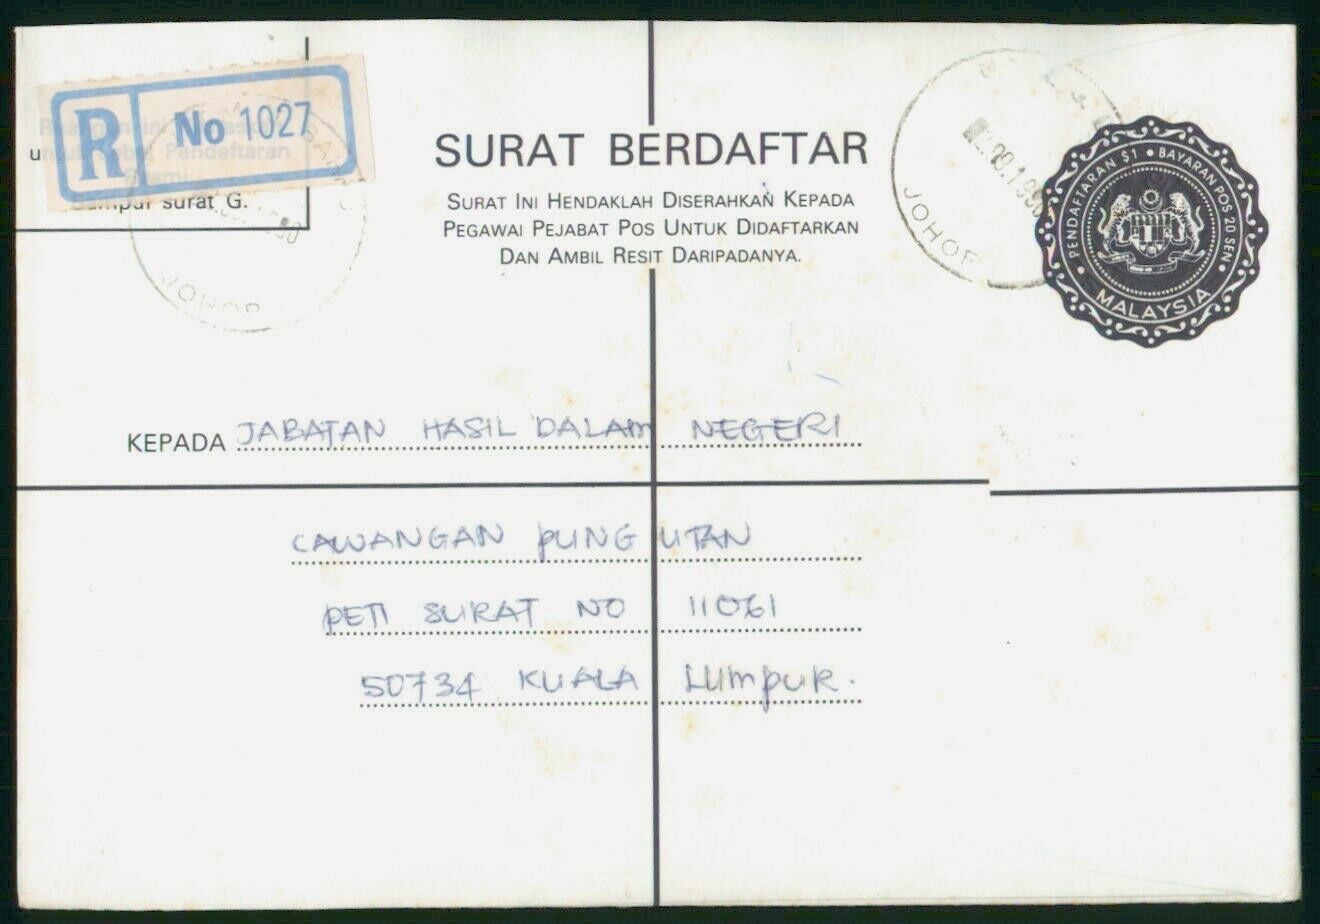 R No 1027
Pendaftaran
surat G.
JOHOR
SURAT BERDAFTAR
SURAT INI HENDAKLAH DISERAHKAN KEPADA
PEGAWAI PEJABAT POS UNTUK DIDAFTARKAN
DAN AMBIL RESIT DARIPADANYA.
JOHOR
PENDAFTARAN $1 • BAYARAN POS 20 SEN
MALAYSIA
KEPADA JABATAN HASIL DALAM NEGERI
CAWANGAN PUNGUTAN
PETI SURAT NO 11061
50734 KUALA LUMPUR.